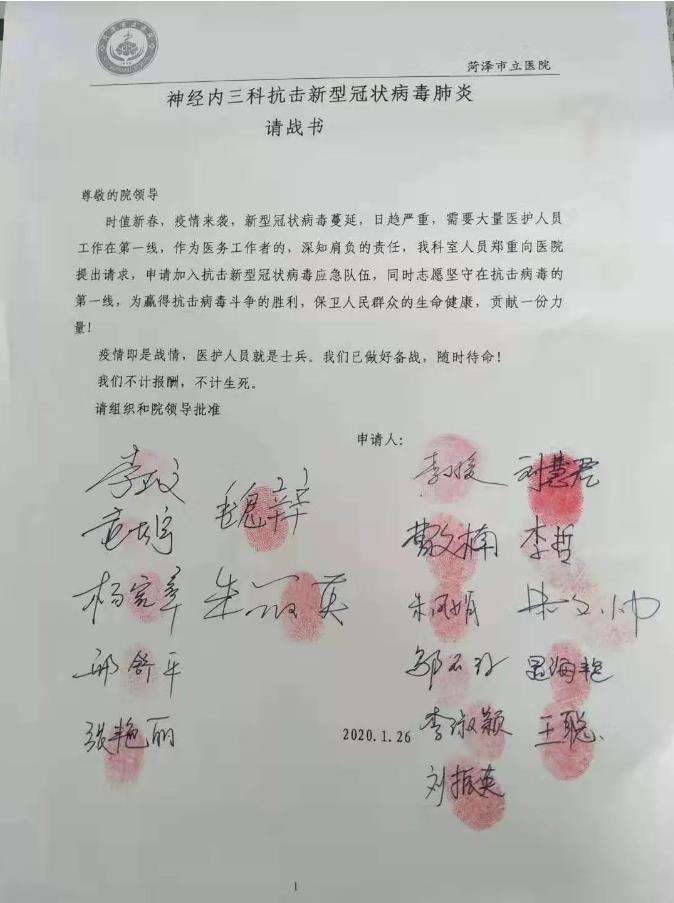 菏泽市立医院
神经内三科抗击新型冠状病毒肺炎
请战书
尊敬的院领导
时值新春，疫情来袭，新型冠状病毒蔓延，日趋严重，需要大量医护人员
工作在第一线，作为医务工作者的、深知肩负的责任，我科室人员郑重向医院
提出请求，申请加入抗击新型冠状病毒应急队伍，同时志愿坚守在抗击病毒的
第一线，为赢得抗击病毒斗争的胜利，保卫人民群众的生命健康，贡献一份力
量！
疫情即是战情，医护人员就是士兵。我们已做好备战，随时待命！
我们不计报酬，不计生死。
请组织和院领导批准
申请人：
刘慧君
曹文楠 李哲
朱凤娟
邱舒平
张艳丽
2020.1.26 李淑颖 王聪
刘振英
1